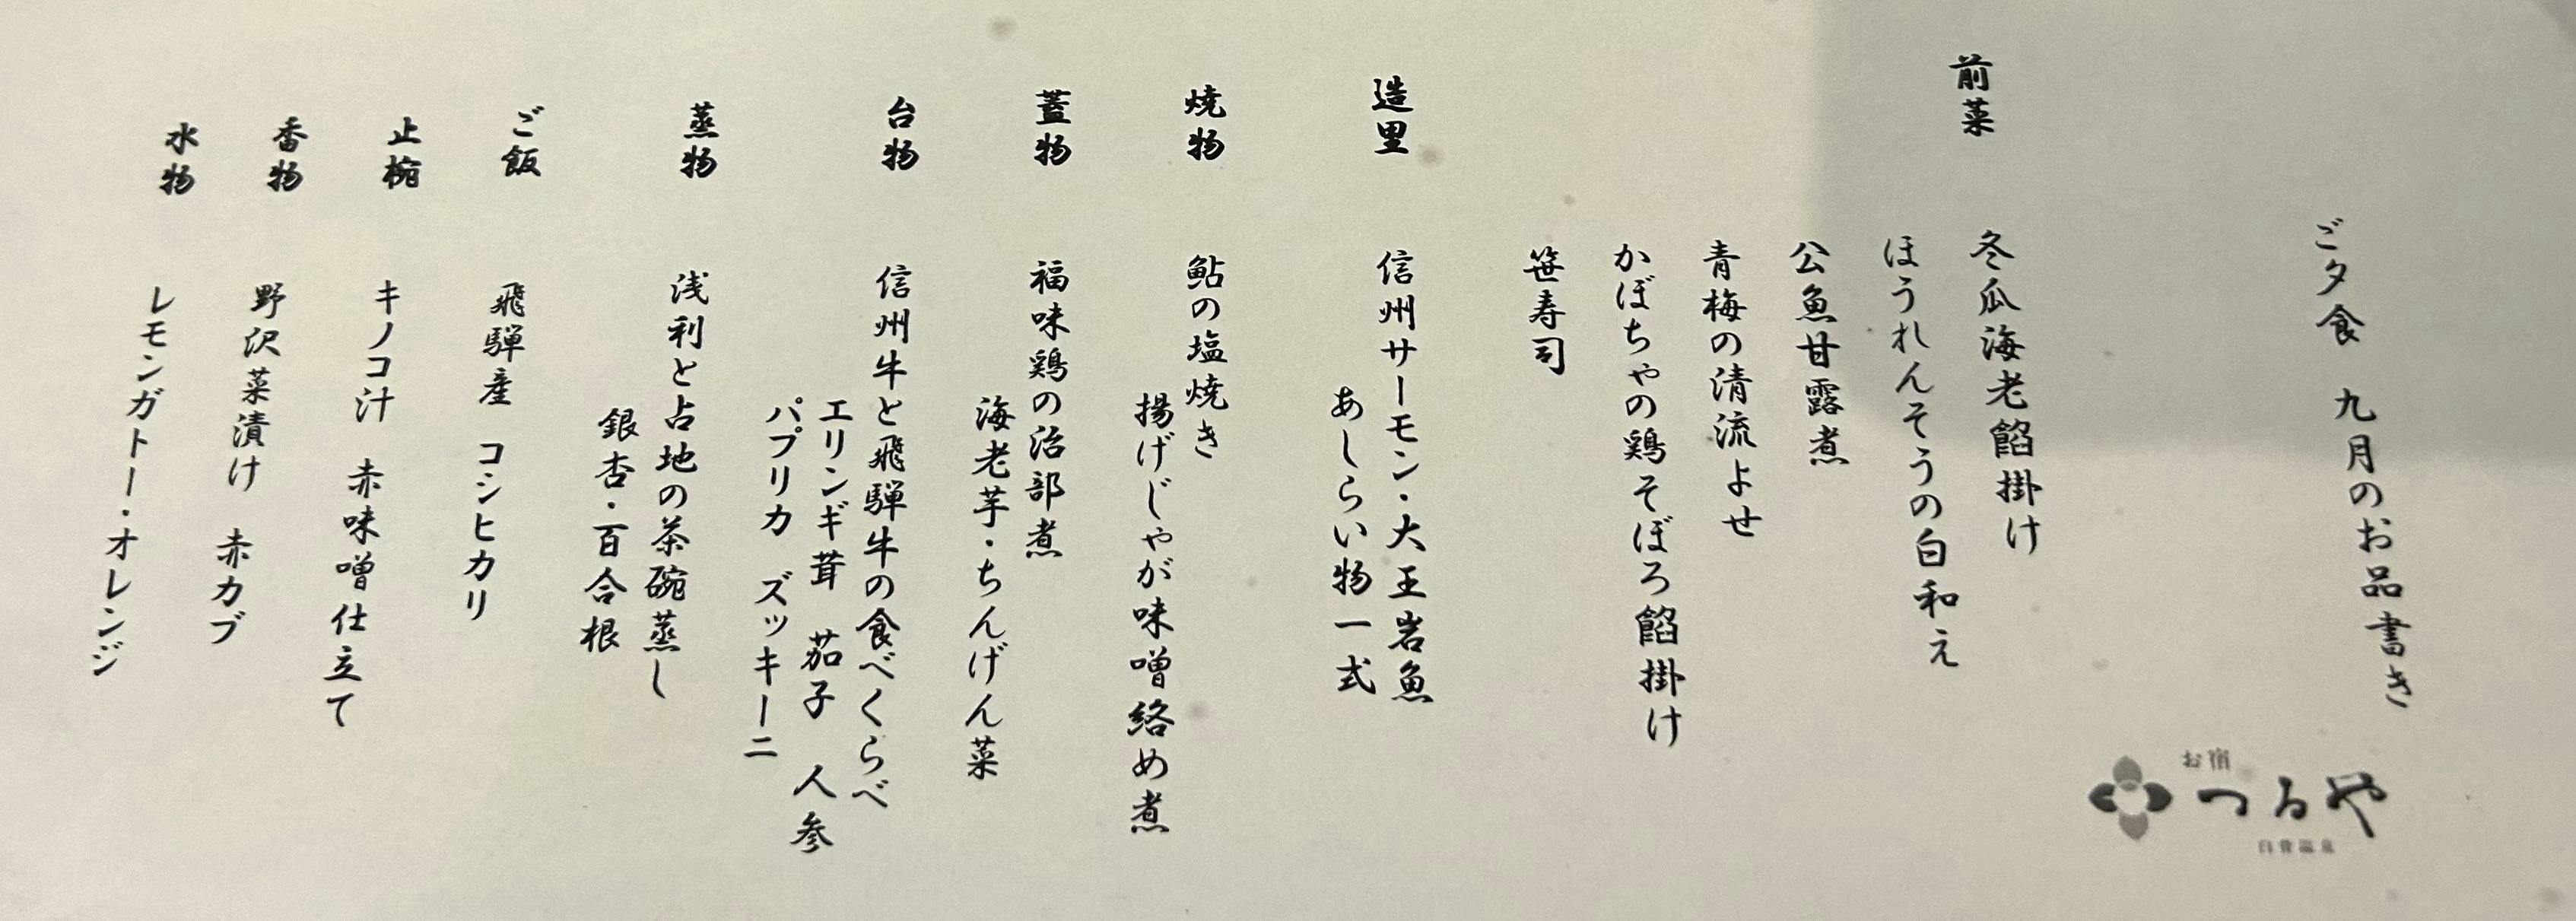 ご夕食　九月のお品書き
お宿
つるや
白骨温泉
前菜
冬瓜海老餡掛け
ほうれんそうの白和え
公魚甘露煮
青梅の清流よせ
かぼちゃの鶏そぼろ餡掛け
笹寿司
造里
信州サーモン・大王岩魚
あしらい物一式
焼物
鮎の塩焼き
揚げじゃが味噌絡め煮
蓋物
福味鶏の治部煮
海老芋・ちんげん菜
台物
信州牛と飛騨牛の食べくらべ
エリンギ茸　茄子　人参
パプリカ　ズッキーニ
蒸物
浅利と占地の茶碗蒸し
銀杏・百合根
ご飯
飛騨産　コシヒカリ
止椀
キノコ汁　赤味噌仕立て
香物
野沢菜漬け　赤カブ
水物
レモンガトー・オレンジ